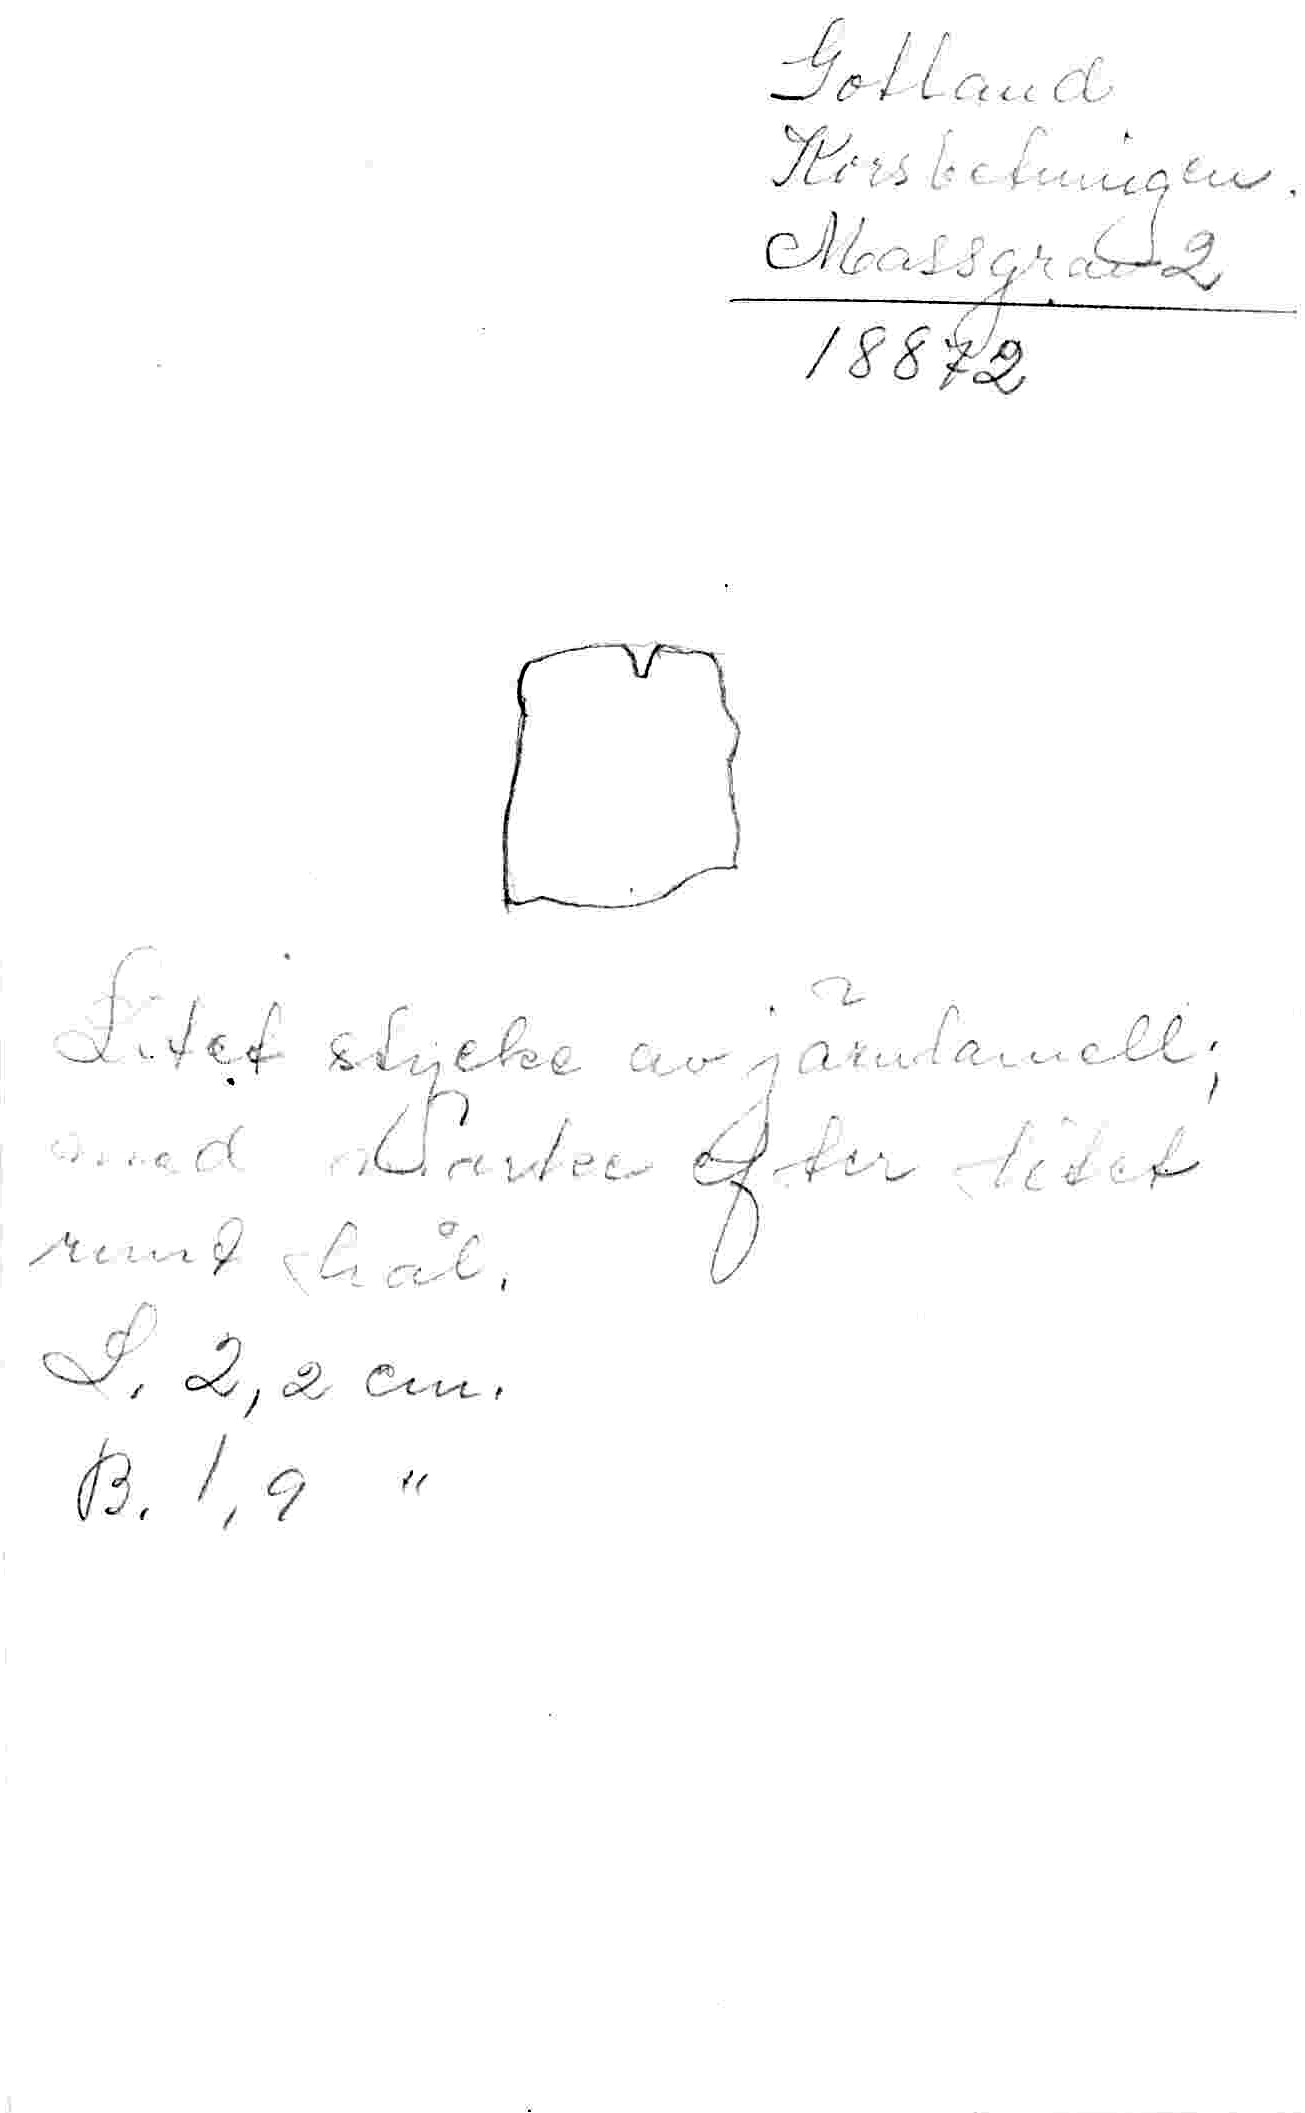 Gotland
Korsbetningen.
Massgrav 2
18872
Litet stycke av järnlamell;
med märke efter litet
runt hål.
L. 2,2 cm.
B. 1,9 "